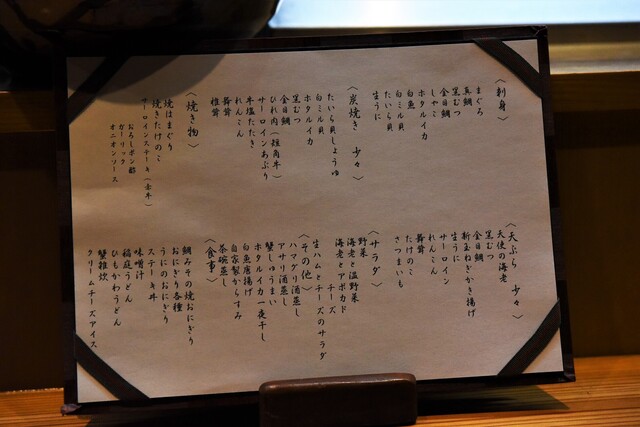 〈刺身〉
まぐろ
真鯛
黒むつ
金目鯛
しゃこ
ホタルイカ
白魚
白ミル貝
たいら貝
生うに
〈炭焼き 少々〉
たいら貝しょうゆ
白ミル貝
ホタルイカ
黒むつ
金目鯛
ひれ肉(短角牛)
サーロインあぶり
牛塩たたき
れんこん
舞茸
椎茸
〈焼き物〉
焼はまぐり
焼きたけのこ
サーロインステーキ(赤牛)
おろしポン酢
ガーリック
オニオンソース
〈天ぷら 少々〉
天使の海老
黒むつ
金目鯛
新玉ねぎかき揚げ
生うに
サーロイン
れんこん
舞茸
たけのこ
さつまいも
〈サラダ〉
野菜
海老と温野菜
海老とアボカド
チーズ
生ハムとチーズのサラダ
〈その他〉
ハマグリ酒蒸し
アサリ酒蒸し
蟹しゅうまい
ホタルイカ一夜干し
白魚唐揚げ
自家製からすみ
茶碗蒸し
〈食事〉
鯛みその焼おにぎり
おにぎり各種
うにのおにぎり
ステーキ丼
味噌汁
稲庭うどん
ひもかわうどん
蟹雑炊
クリームチーズアイス